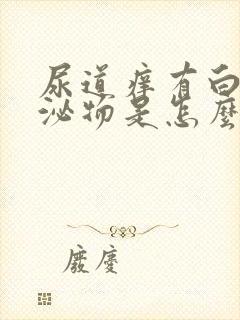 尿道痒有白
泌物是怎麼
廢慶